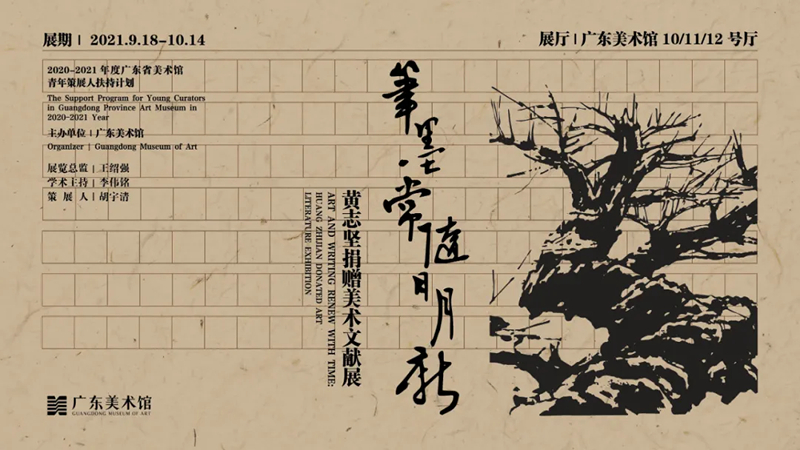 展期 | 2021.9.18-10.14
展厅 | 广东美术馆 10/11/12 号厅
2020-2021 年度广东省美术馆
青年策展人扶持计划
The Support Program for Young Curators
in Guangdong Province Art Museum in
2020-2021 Year
主办单位 | 广东美术馆
Organizer | Guangdong Museum of Art
展览总监 | 王绍强
学术主持 | 李伟铭
策 展 人 | 胡宇清
筆墨常随日月新
黄志坚捐赠美术文献展
ART AND WRITING RENEW WITH TIME:
HUANG ZHIJIAN DONATED ART
LITERATURE EXHIBITION
广东美术馆
GUANGDONG MUSEUM OF ART